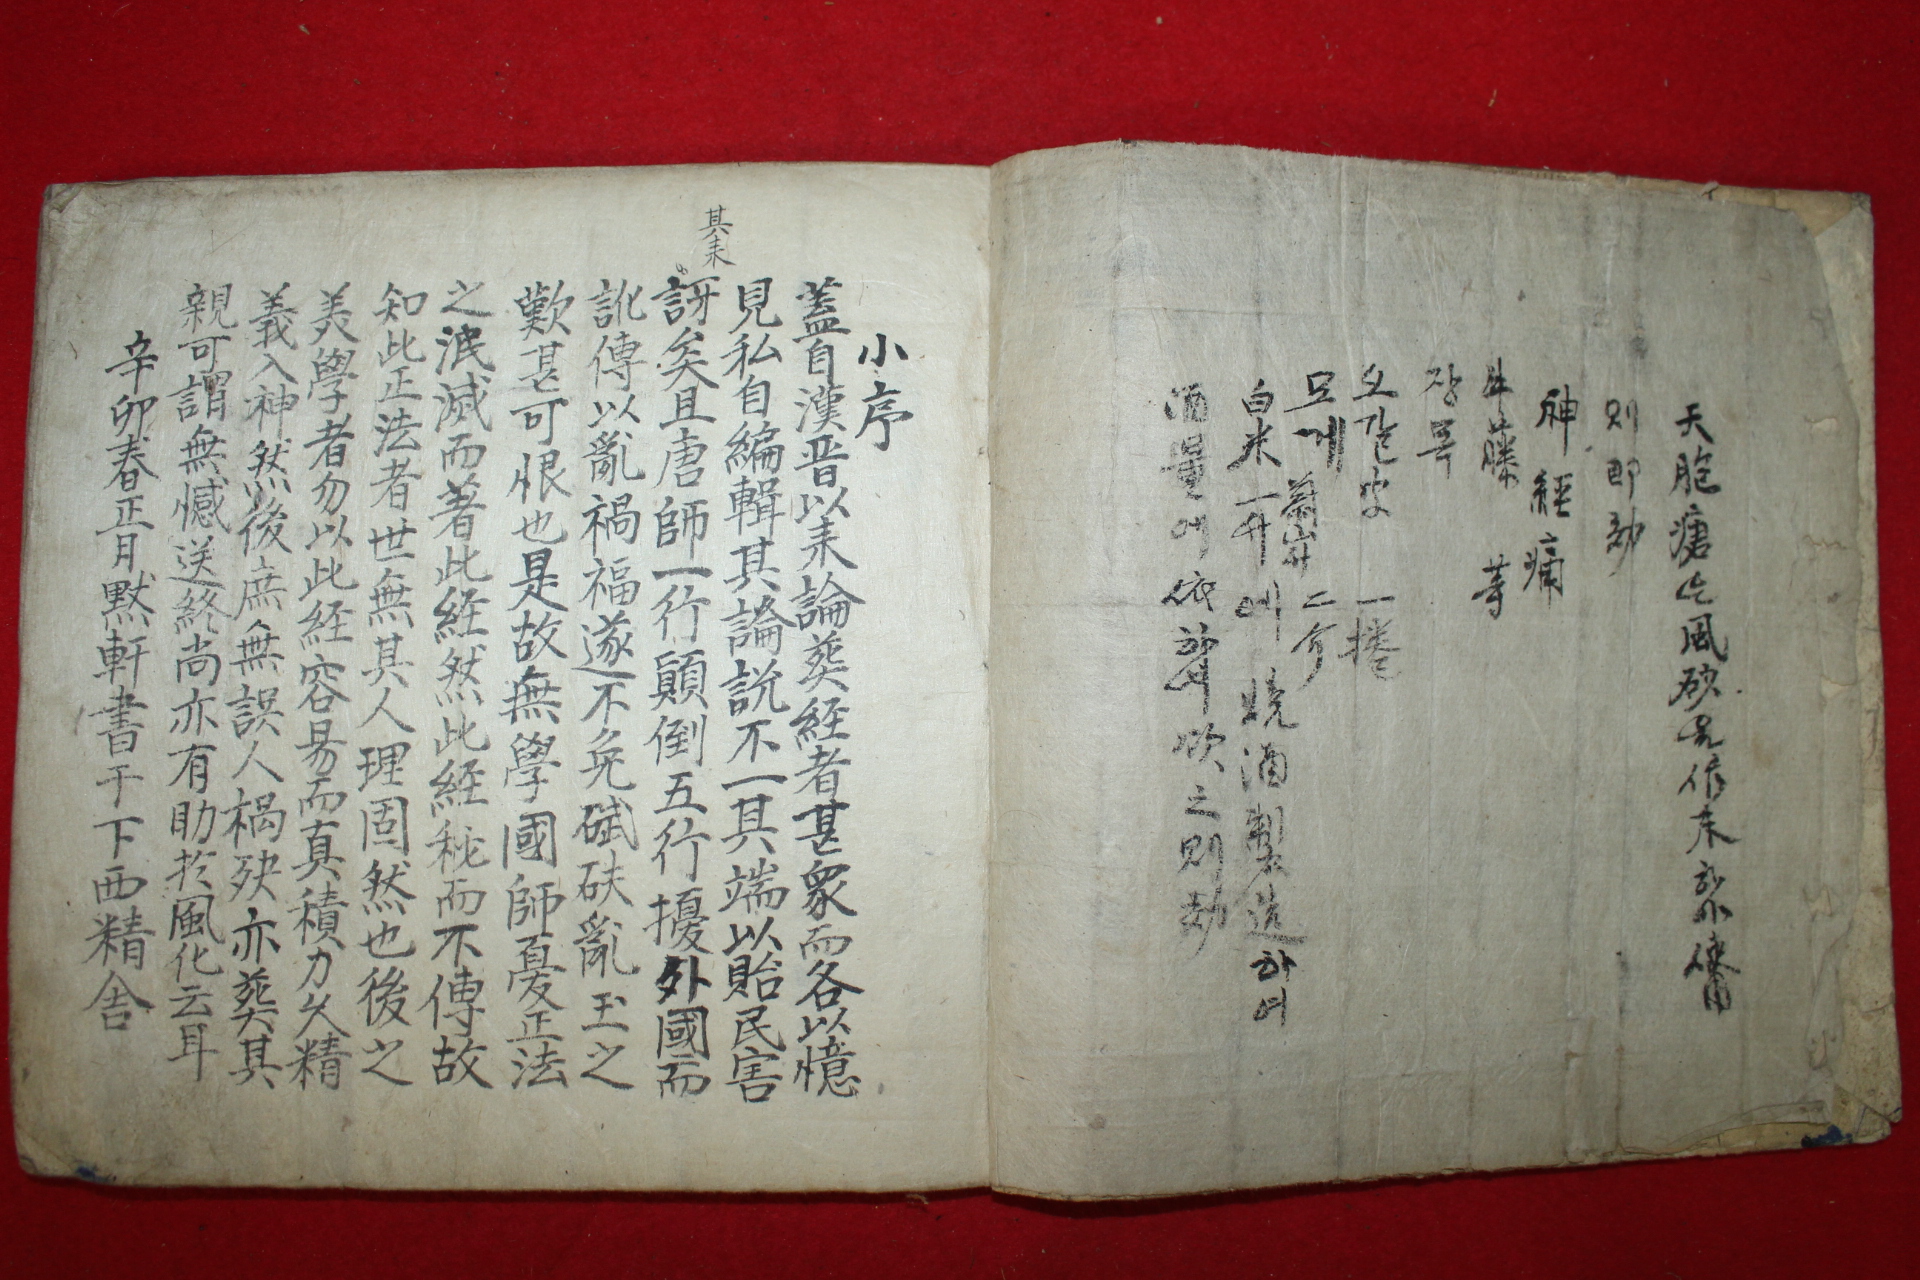 天胞瘡은風砂를作末하야傅
則卽効
神經痛
牛藤 等
장목
오갈皮 一捲
모게 二介
白米一升에 燒酒製造하여
酒量에依하야飮之則効
小序
蓋自漢晋以来論葬経者甚衆而各以憶
見私自編輯其論說不一其端以貽民害
其来
訝矣且唐師一行顚倒五行擾外國而
訛傳以亂禍福遂不免碔砆亂玉之
歎甚可恨也是故無學國師憂正法
之泯滅而著此経然此経秘而不傳故
知此正法者世無其人理固然也後之
美學者勿以此経容昜而真積力久精
義入神然後庶無誤人禍殃亦葬其
親可謂無憾送終尚亦有助於風化云耳
辛卯春正月默軒書于下西精舍